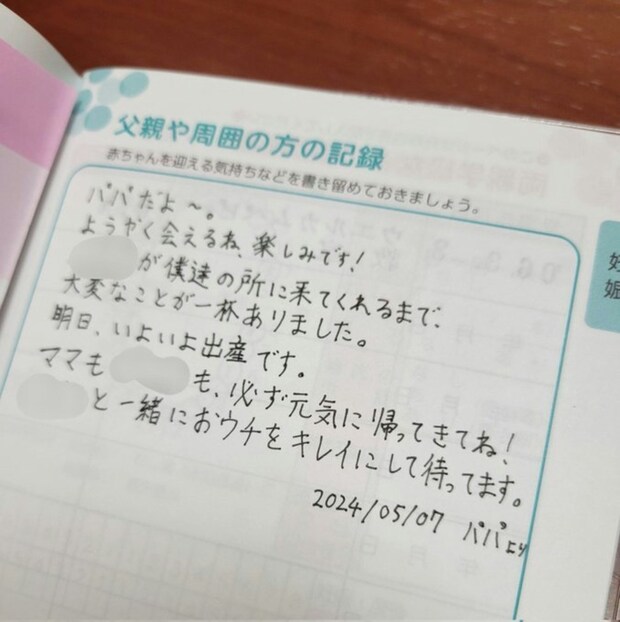 父親や周囲の方の記録
赤ちゃんを迎える気持ちなどを書き留めておきましょう。
パパだよ～。
ようやく会えるね、楽しみです!
が僕達の所に来てくれるまで、
大変なことが一杯ありました。
明日、いよいよ出産です。
ママも も、必ず元気に帰ってきてね!
と一緒におウチをキレイにして待ってます。
2024/05/07 パパより
妊
娠